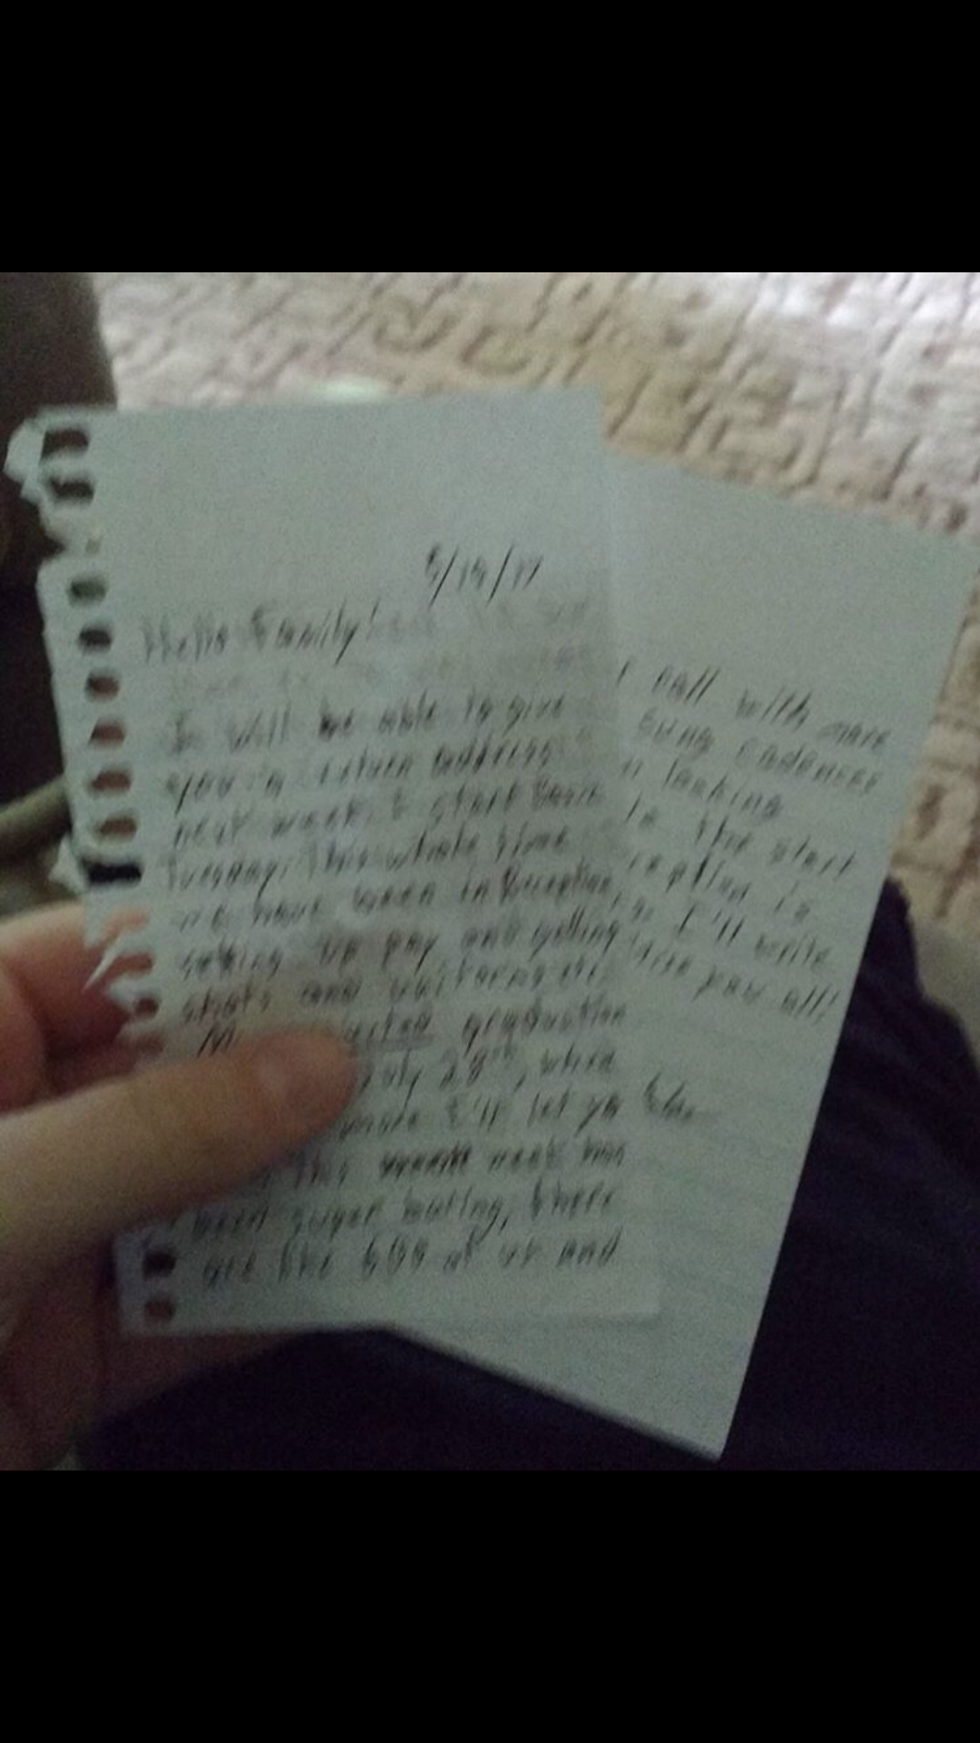 5/19/17
Hello Family!
I will be able to give
you a return address
next week. I start Basic
Tuesday. This whole time
we have been in Reception,
setting up pay and getting
shots and uniforms etc.
graduation
July 28th, when
more I'll let ya know
This week has
been super boring, there
are like 600 of us and
call with more
sung cadences
looking
to the start
is
I'll write
you all!